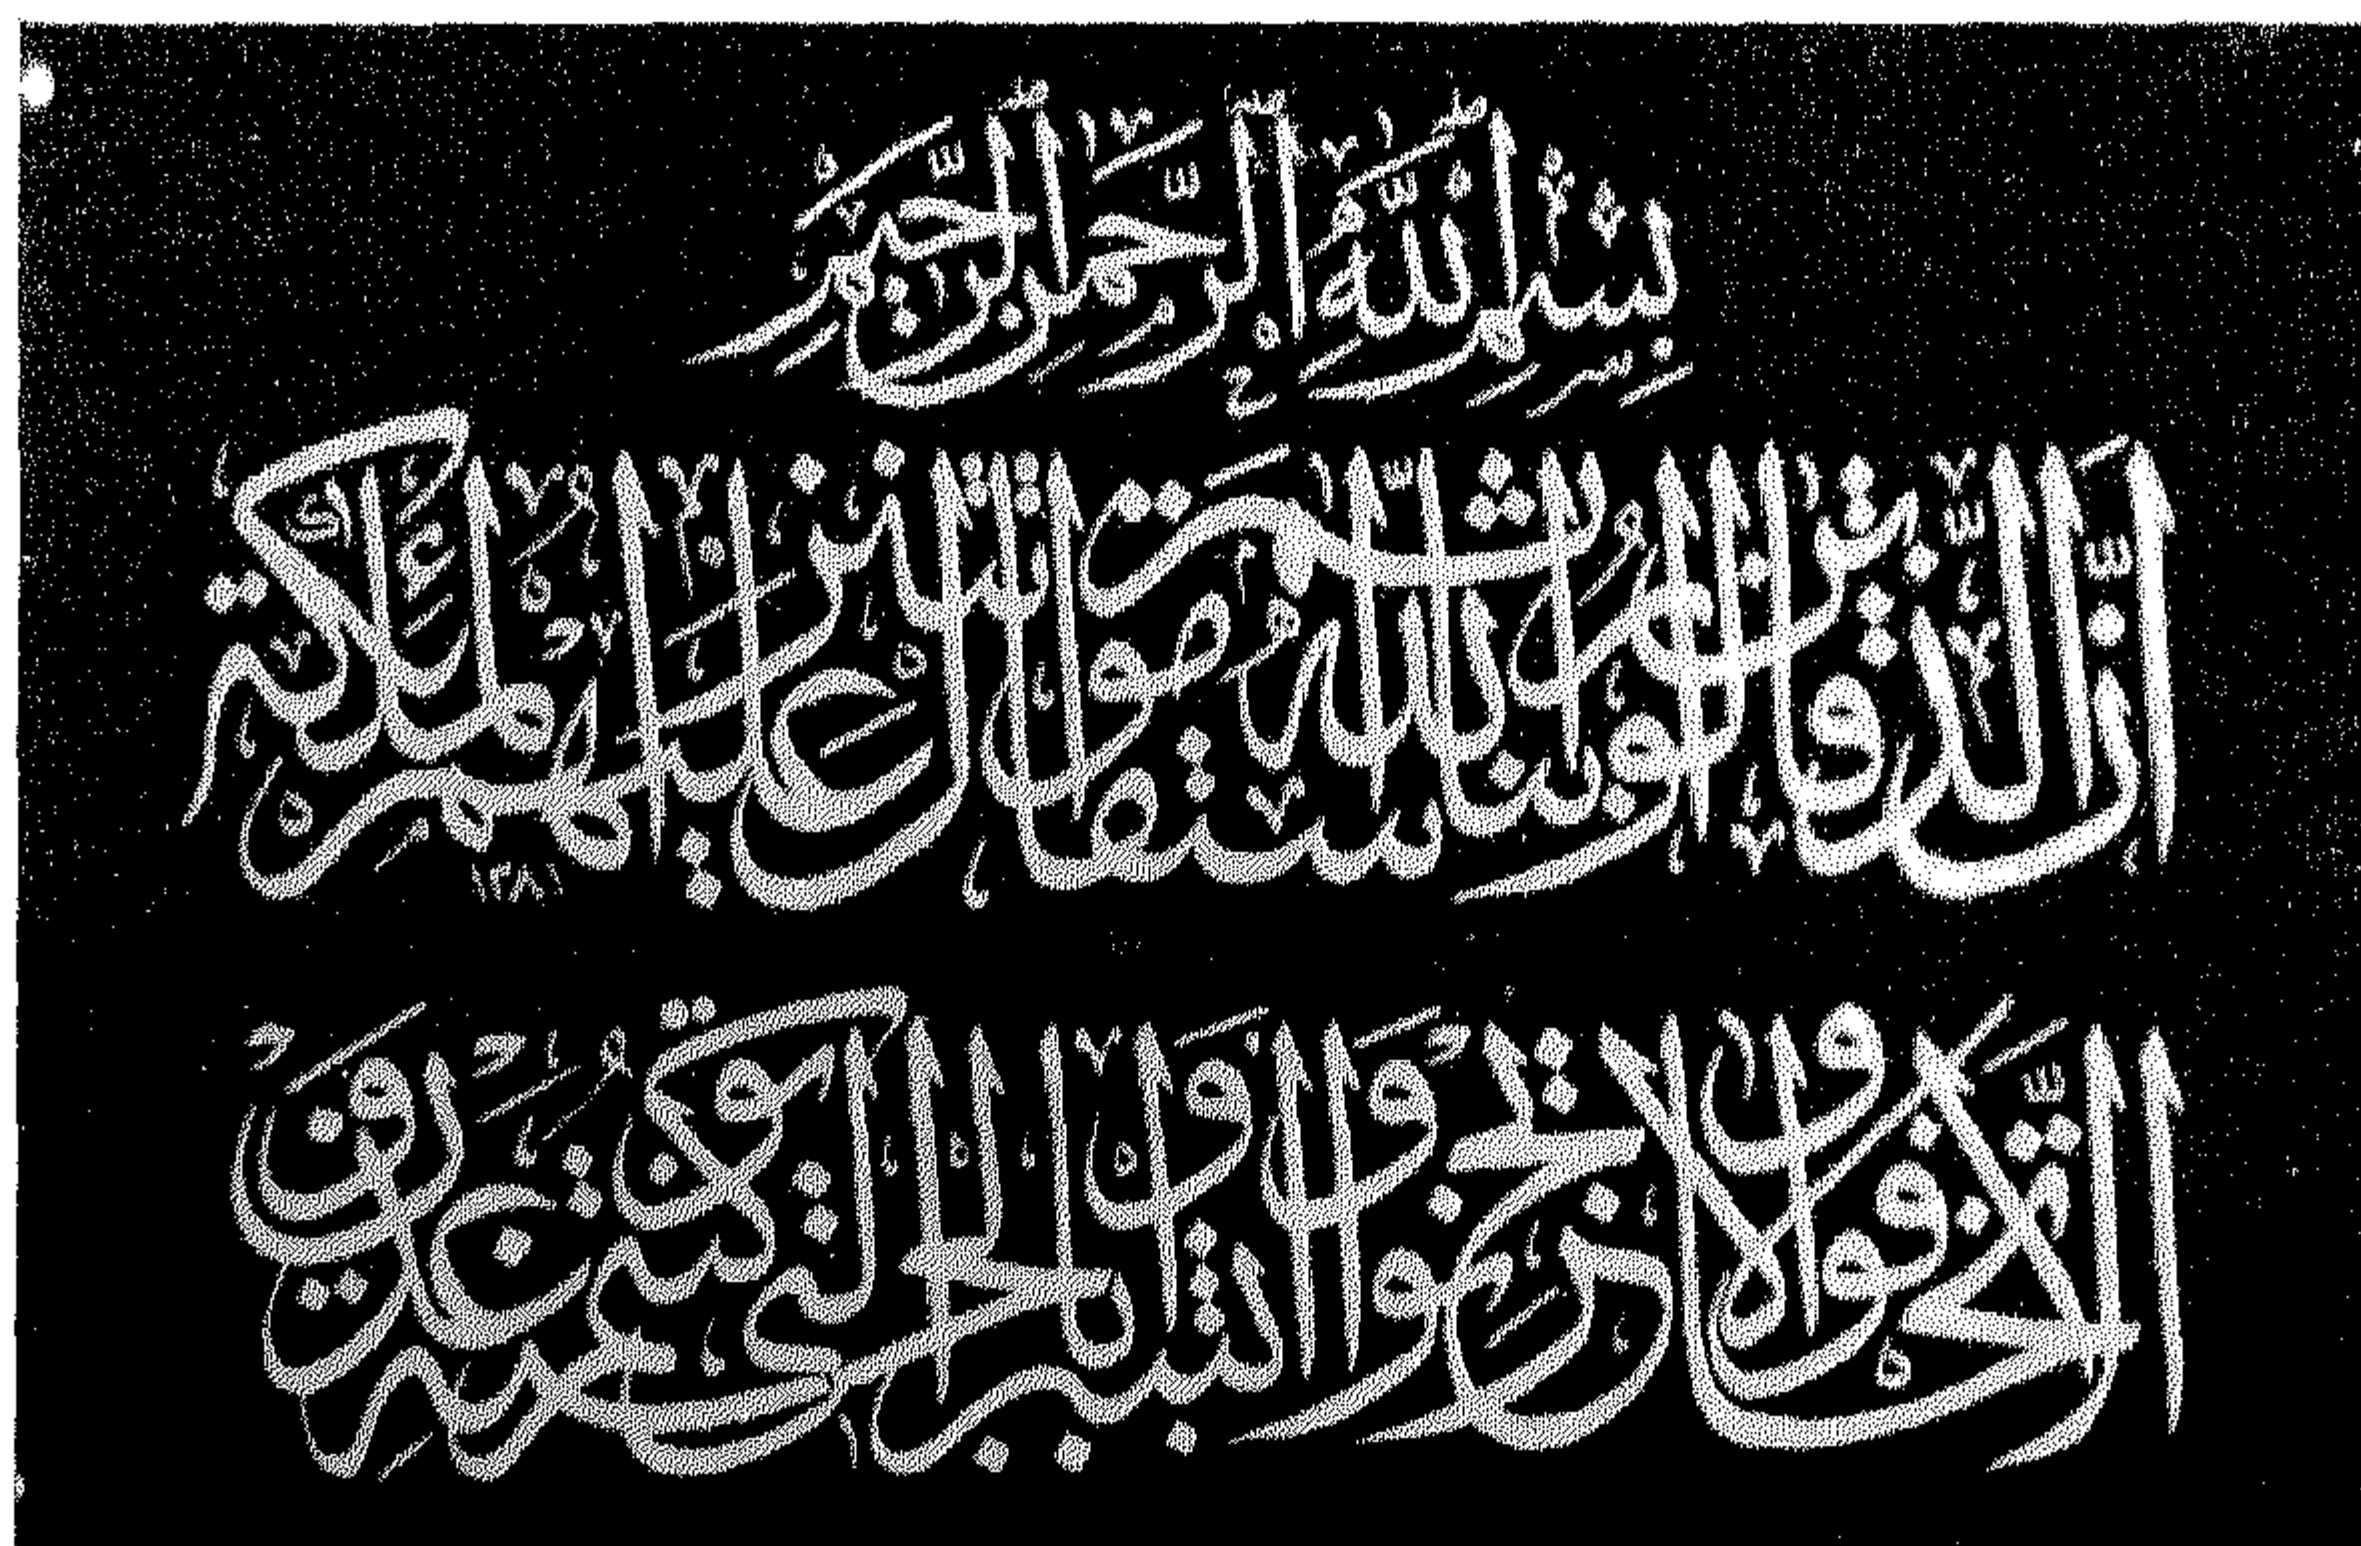 بِسْمِ اللَّهِ الرَّحْمَٰنِ الرَّحِيمِ
إِنَّ الَّذِينَ قَالُوا رَبُّنَا اللَّهُ ثُمَّ اسْتَقَامُوا تَتَنَزَّلُ عَلَيْهِمُ الْمَلَٰئِكَةُ
١٣٨١
أَلَّا تَخَافُوا وَلَا تَحْزَنُوا وَأَبْشِرُوا بِالْجَنَّةِ الَّتِي كُنْتُمْ تُوعَدُونَ